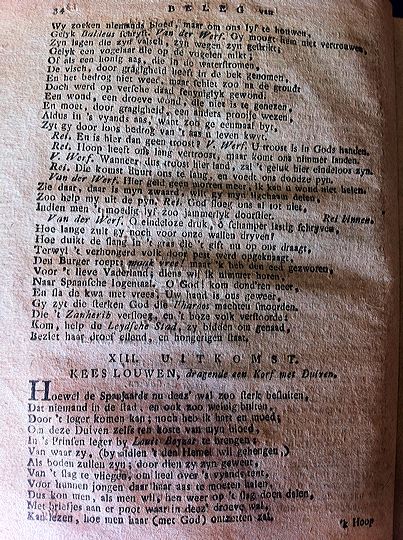 34 BELEG van
Wy zoeken niemands bloed, maar om ons lyf te houwen,
Gelyk Baldeus schryft. Van der Werf. Gy moogt hem niet vertrouwen,
Zyn lagen die zyn valsch, zyn wegen zyn gestrikt,
Gelyk een vogelaar die op de vogelen mikt;
Of als een honig aas, die in de waterstromen,
De visch, door gragigheid heeft in de bek genomen,
En het bedrog niet weet, maar schiet zoo na de grondt
Doch werd op versche daad fenynigh gewond.
Een wond, een droeve wond, die niet is te genezen,
En moet, door gragigheid, een anders prooije wezen,
Aldus in 's vyands aas, want zoo ge eenmaal byt,
Zyt gy door loos bedrog van 't aas in leven kwyt.
Rei. En is hier dan geen troost? V. Werf. U troost is in Gods handen.
Rei. Hoop heeft ons lang vertroost, maar komt ons nimmer landen.
V. Werf. Wanneer dit troost hier land, zal 't geluk hier eindeloos zyn.
Rei. Die komst duurt ons te lang, en voedt ons doodze pyn.
Van der Werf. Hier geld geen morren meer, ik kan u wond niet helen,
Zie daar, daar is myn zwaard, wilt gy myn lighaam delen,
Zoo help my uit de pyn, Rei. God hoed ons al tot niet,
Indien men 't moedig lyf zoo jammerlyk doorstiet. Rei binnen.
Van der Werf. O eindeloze druk, ô schamper lastig schryven,
Hoe lange zult gy noch voor onze wallen dryven?
Hoe duikt de slang in 't gras die 't gift nu op ons draagt,
Terwyl 't verhongerd volk door pest werd opgeknaagt,
Den Burger roept maak vree! maar 'k heb den eed gezworen,
Voor 't lieve Vaderland; diens wil ik nimmer horen
Naar Spaansche logentaal. O God! kom dond'ren neer,
En sla de kwa met vrees, Uw hand is ons geweer,
Gy zyt die sterken God die Pharoos machten smoorden,
Die 't Zanherib versloeg, en 't boze volk verstoorde:
Kom, help de Leydsche Stad, zy bidden om genaad,
Beziet haar droef ellend, en hongerigen staat.
XIII. UITKOMST.
KEES LOUWEN, dragende een Korf met Duiven.
Hoewel de Spanjaards nu deez' wal zoo sterk besluiten,
Dat niemand in de stad, en ook zoo weinig buiten,
Door 't leger komen kan; noch heb ik hart en moed;
Om deze Duiven zelfs ten koste van myn bloed
In 's Prinsen leger by Louis Boyzot te brengen;
Van waar zy, (by aldien 't den Hemel wil gehengen,)
Als boden zullen zyn; door dien zy zyn gewent,
Van 't slag te vliegen, om heel over 's vyands tent,
Voor hunnen jongen daar haar aas te moeten halen,
Dus kon men, als men wil, hen weer op 't slag doen dalen,
Met briefjes aan er poot waar in deez' droeve wal,
Kan lezen, hoe men haar (met God) ontzetten zal.
'k Hoop